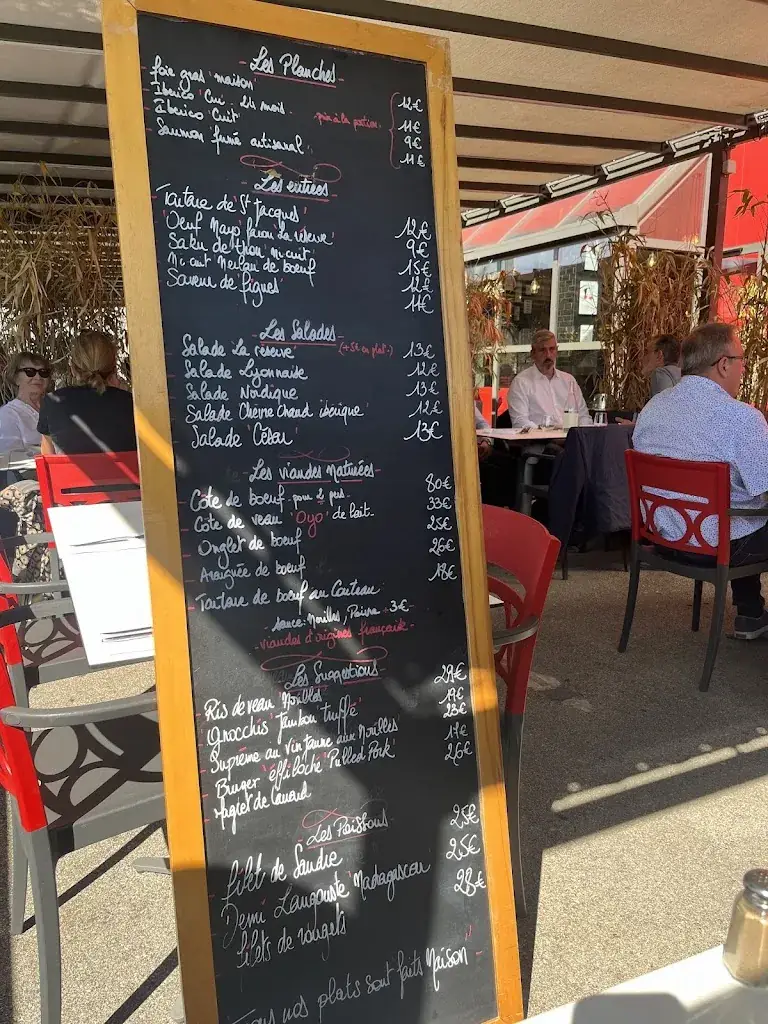 Les Planches
foie gras 'maison' 12€
Iberico 'Cru' 24 mois. prix à la portion 11€
Iberico 'Cuit' 9€
Saumon fumé artisanal. 11€
Les entrées
Tartare de St Jacques 12€
'Oeuf Mayo' façon 'La réserve' 9€
Saku de thon mi cuit 15€
Mi cuit Merlan de boeuf 12€
Saveur de figues 11€
Les Salades
Salade 'La réserve' (+5€ en plat) 13€
Salade Lyonnaise 12€
Salade Nordique 13€
Salade Chèvre Chaud ibérique' 12€
Salade 'César' 13€
Les viandes Maturées
Côte de boeuf pour 2 pers. 80€
Côte de veau 'Oyo' de lait 33€
Onglet de boeuf 25€
Araignée de boeuf 26€
Tartare de boeuf au Couteau 18€
sauce: Morilles, Poivre +3€
viandes d'origines française
Les Suggestions
Ris de veau 'Morilles 29€
Gnocchis 'Jambon truffé' 19€
Suprême au vin jaune aux Morilles 23€
Burger 'effiloché 'Pulled Pork' 17€
Magret de Canard 26€
Les Poissons
filet de Sandre 25€
Demi Langouste 'Madagascar 25€
filets de rougets 28€
Tous nos plats sont faits Maison